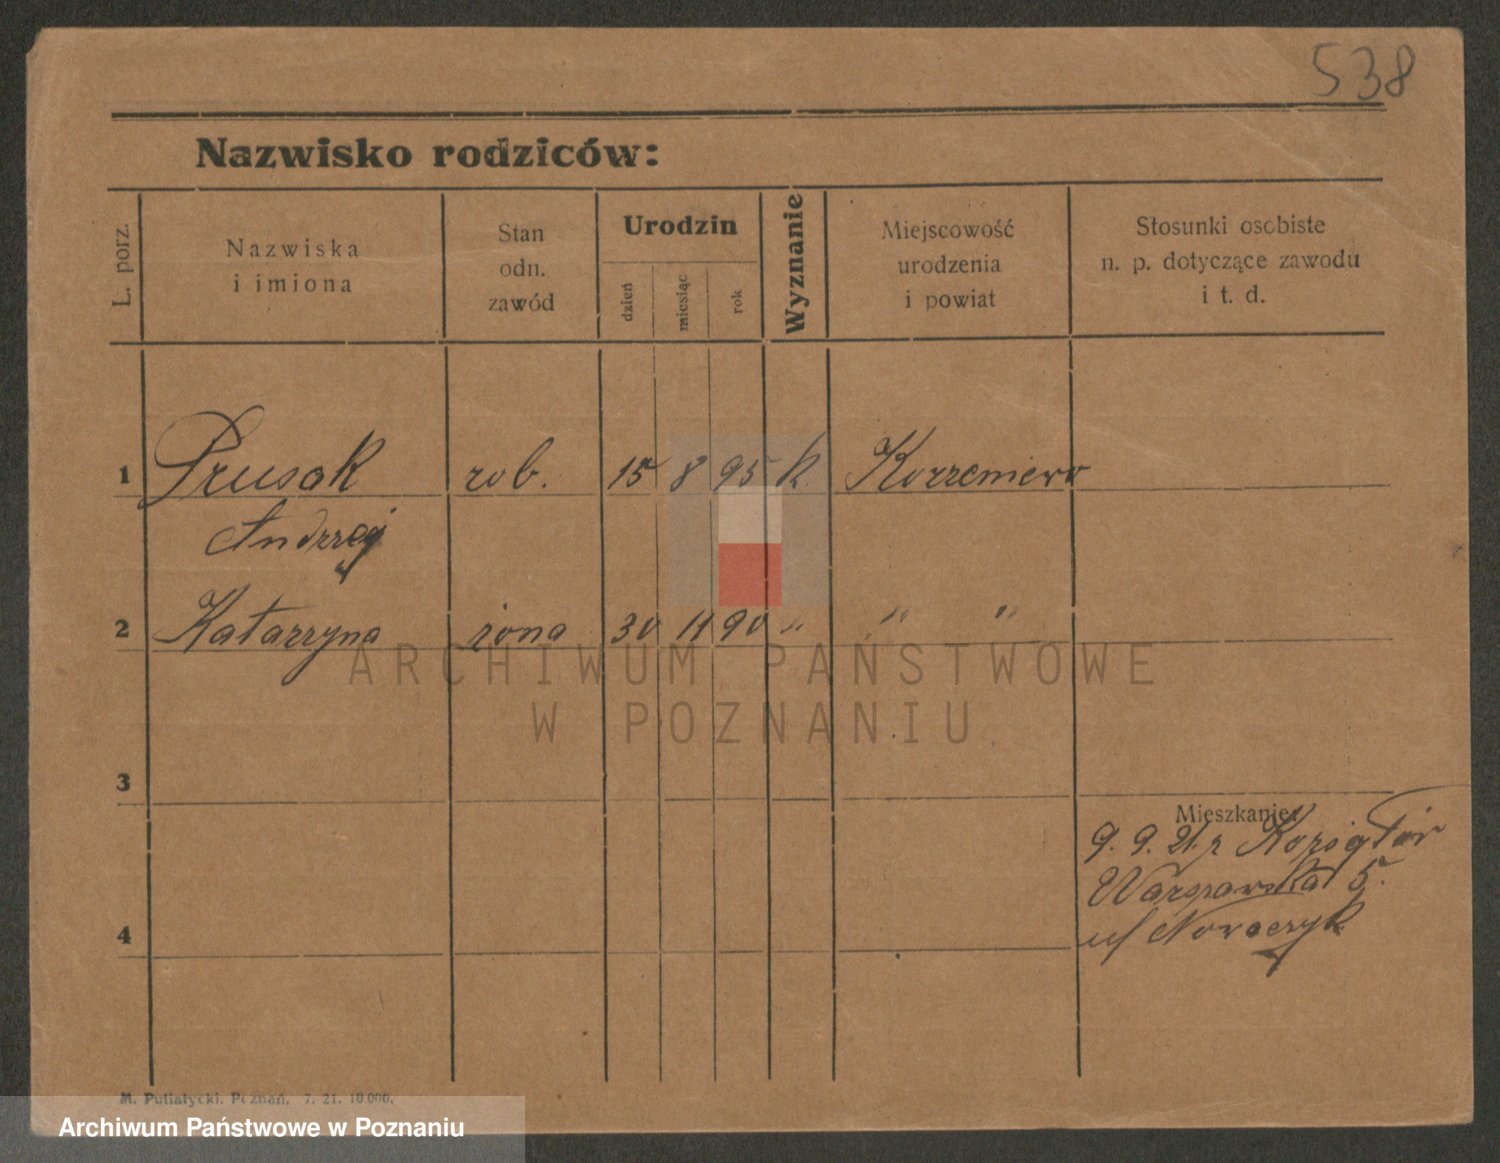 538
Nazwisko rodziców:
L. porz.
Nazwiska
i imiona
Stan
odn.
zawód
Urodzin
dzień
miesiąc
rok
Wyznanie
Miejscowość
urodzenia
i powiat
Stosunki osobiste
n. p. dotyczące zawodu
i t. d.
1 Prusak rob. 15 8 95 k. Korzeniew
Andrzej
2 Katarzyna żona 30 11 90 " " "
ARCHIWUM PAŃSTWOWE
W POZNANIU
3
Mieszkanie:
9. 9. 21. z
Warszawska 5.
4
M. Putiatycki. Poznań. 7. 21. 10 000.
Archiwum Państwowe w Poznaniu